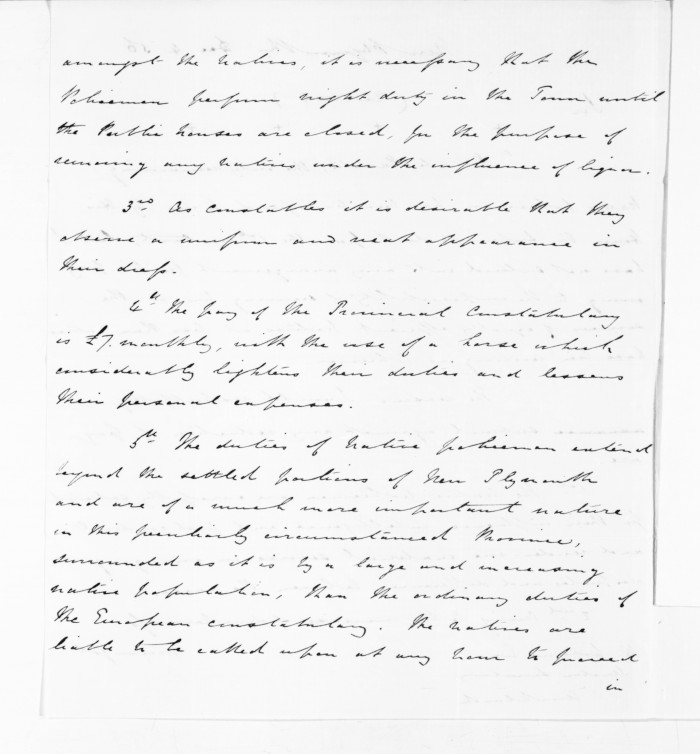 amongst the natives, it is necessary that the
Policemen perform night duty in the Town until
the Public houses are closed, for the purpose of
removing any natives under the influence of liquor.
3rd As constables it is desirable that they
observe a uniform and neat appearance in
their dress.
4th The pay of the Provincial Constabulary
is £7. monthly, with the use of a horse which
considerably lightens their duties and lessens
their personal expenses.
5th The duties of Native policemen extend
beyond the settled portions of New Plymouth
and are of a much more important nature
in this peculiarly circumstanced Province,
surrounded as it is by a large and increasing
native population, than the ordinary duties of
the European constabulary. The natives are
liable to be called upon at any hour to proceed
in